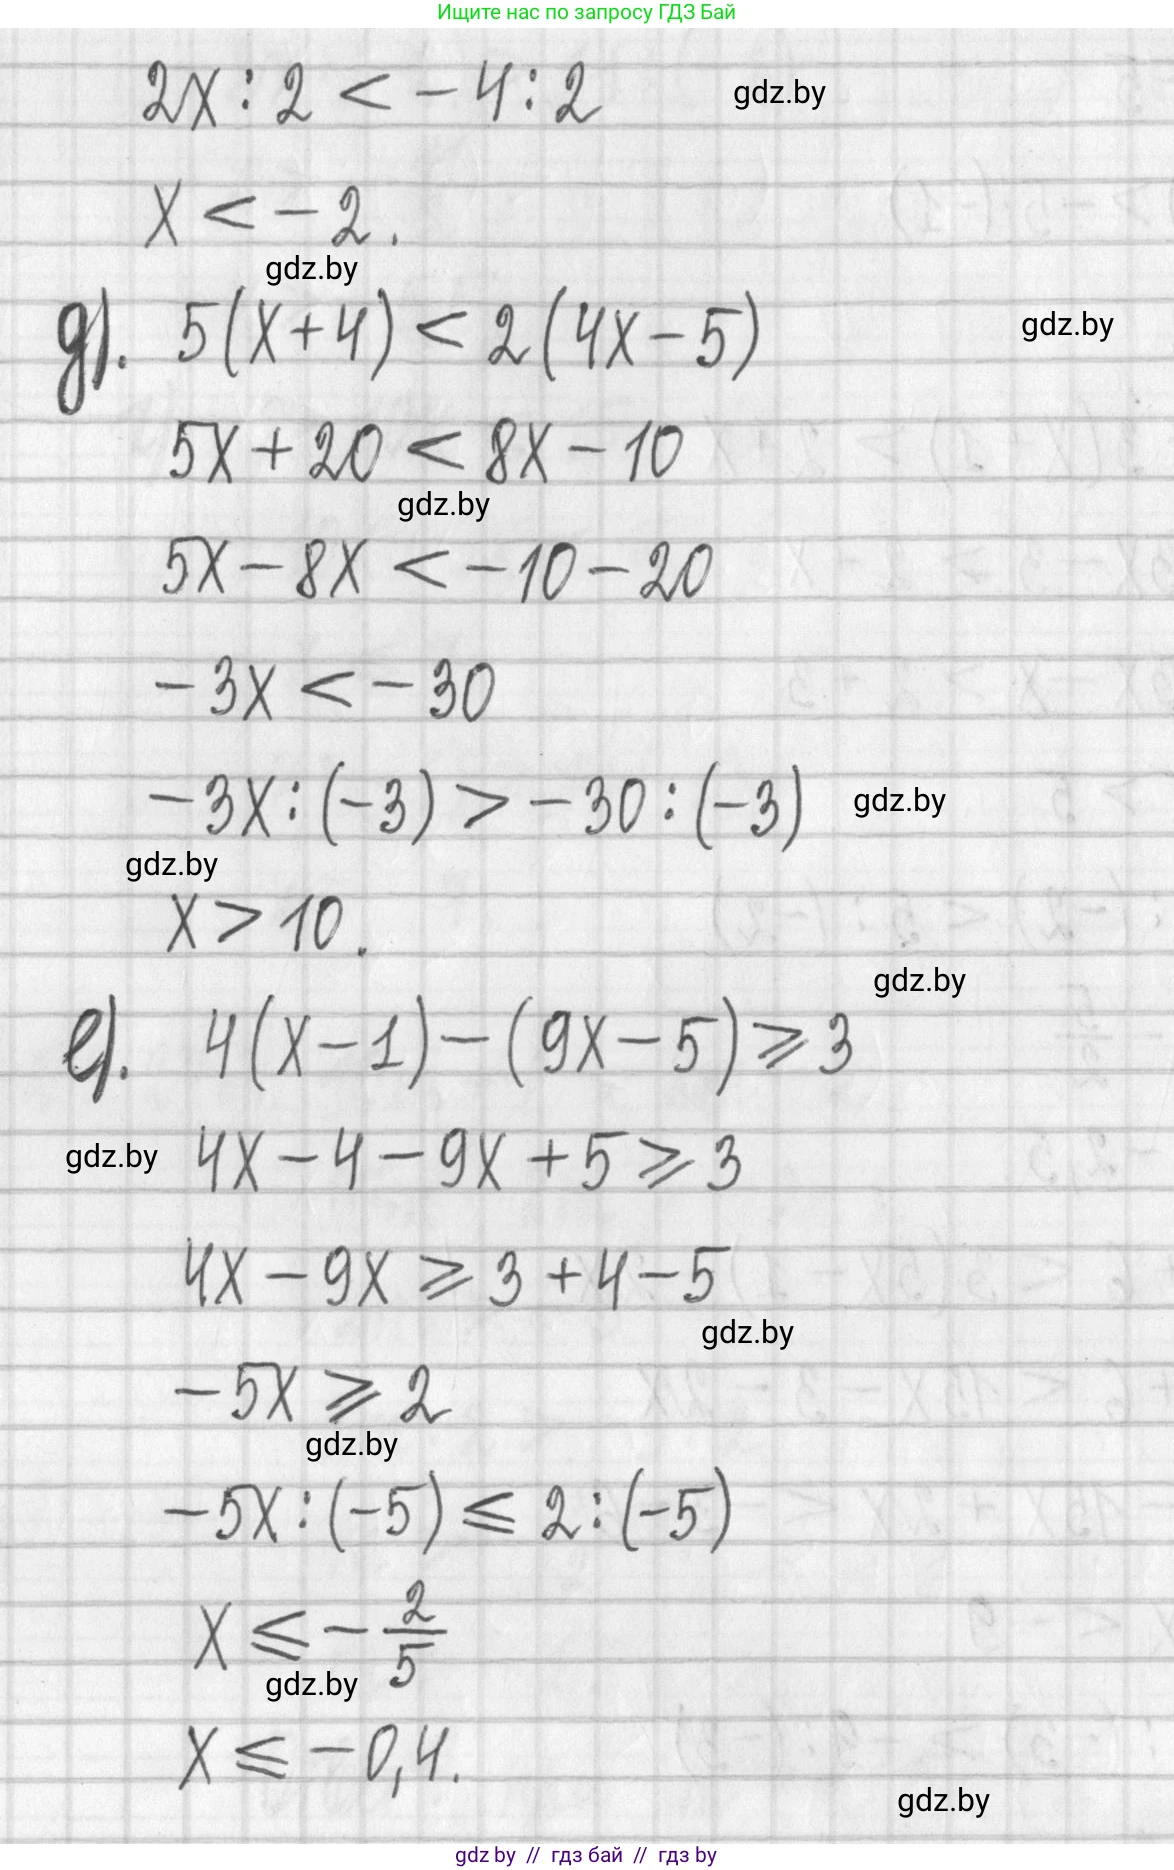 Ищите нас по запросу ГДЗ Бай
2x : 2 < - 4 : 2
gdz.by
x < - 2.
gdz.by
д). 5(x+4) < 2(4x-5)
gdz.by
5x + 20 < 8x - 10
gdz.by
5x - 8x < - 10 - 20
- 3x < - 30
- 3x : (-3) > - 30 : (-3)
gdz.by
gdz.by
x > 10.
gdz.by
е). 4(x-1) - (9x-5) ⩾ 3
gdz.by
4x - 4 - 9x + 5 ⩾ 3
4x - 9x ⩾ 3 + 4 - 5
gdz.by
- 5x ⩾ 2
gdz.by
- 5x : (-5) ⩽ 2 : (-5)
x ⩽ - 2/5
gdz.by
x ⩽ - 0,4.
gdz.by
gdz by // гдз бай // гдз by